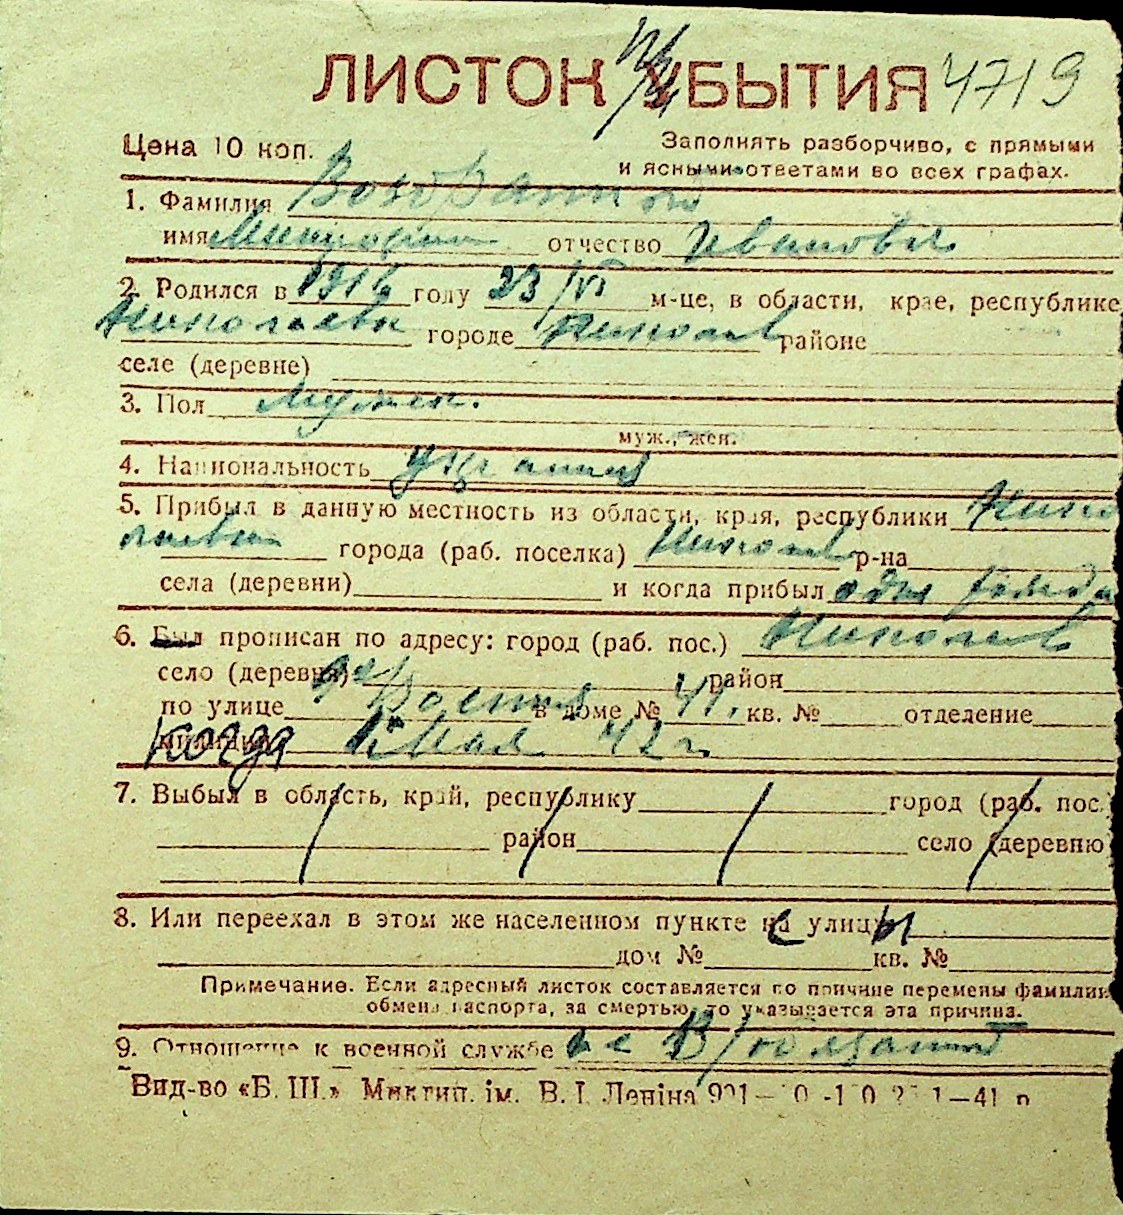 ЛИСТОК УБЫТИЯ 4719
Цена 10 коп.
Заполнять разборчиво, с прямыми
и ясными ответами во всех графах.
1. Фамилия
имя отчество Иванович
2. Родился в 1916 году 23/VI м-це, в области, крае, республике
Николаевск городе Николаев районе
селе (деревне)
3. Пол мужск.
муж., жен.
4. Национальность украинец
5. Прибыл в данную местность из области, края, республики Нико
лаевск города (раб. поселка) Николаев р-на
села (деревни) и когда прибыл
6. Был прописан по адресу: город (раб. пос.) Николаев
село (деревня) район
по улице в доме № 41, кв. № отделение
когда Мая 42 г.
7. Выбыл в область, край, республику город (раб. пос.)
район село (деревню
8. Или переехал в этом же населенном пункте с улицы
дом № кв. №
Примечание. Если адресный листок составляется по причине перемены фамилии
обмена паспорта, за смертью, то указывается эта причина.
9. Отношение к военной службе не в/обязанный
Вид-во «Б. Ш.» Миктип. ім. В. І. Леніна